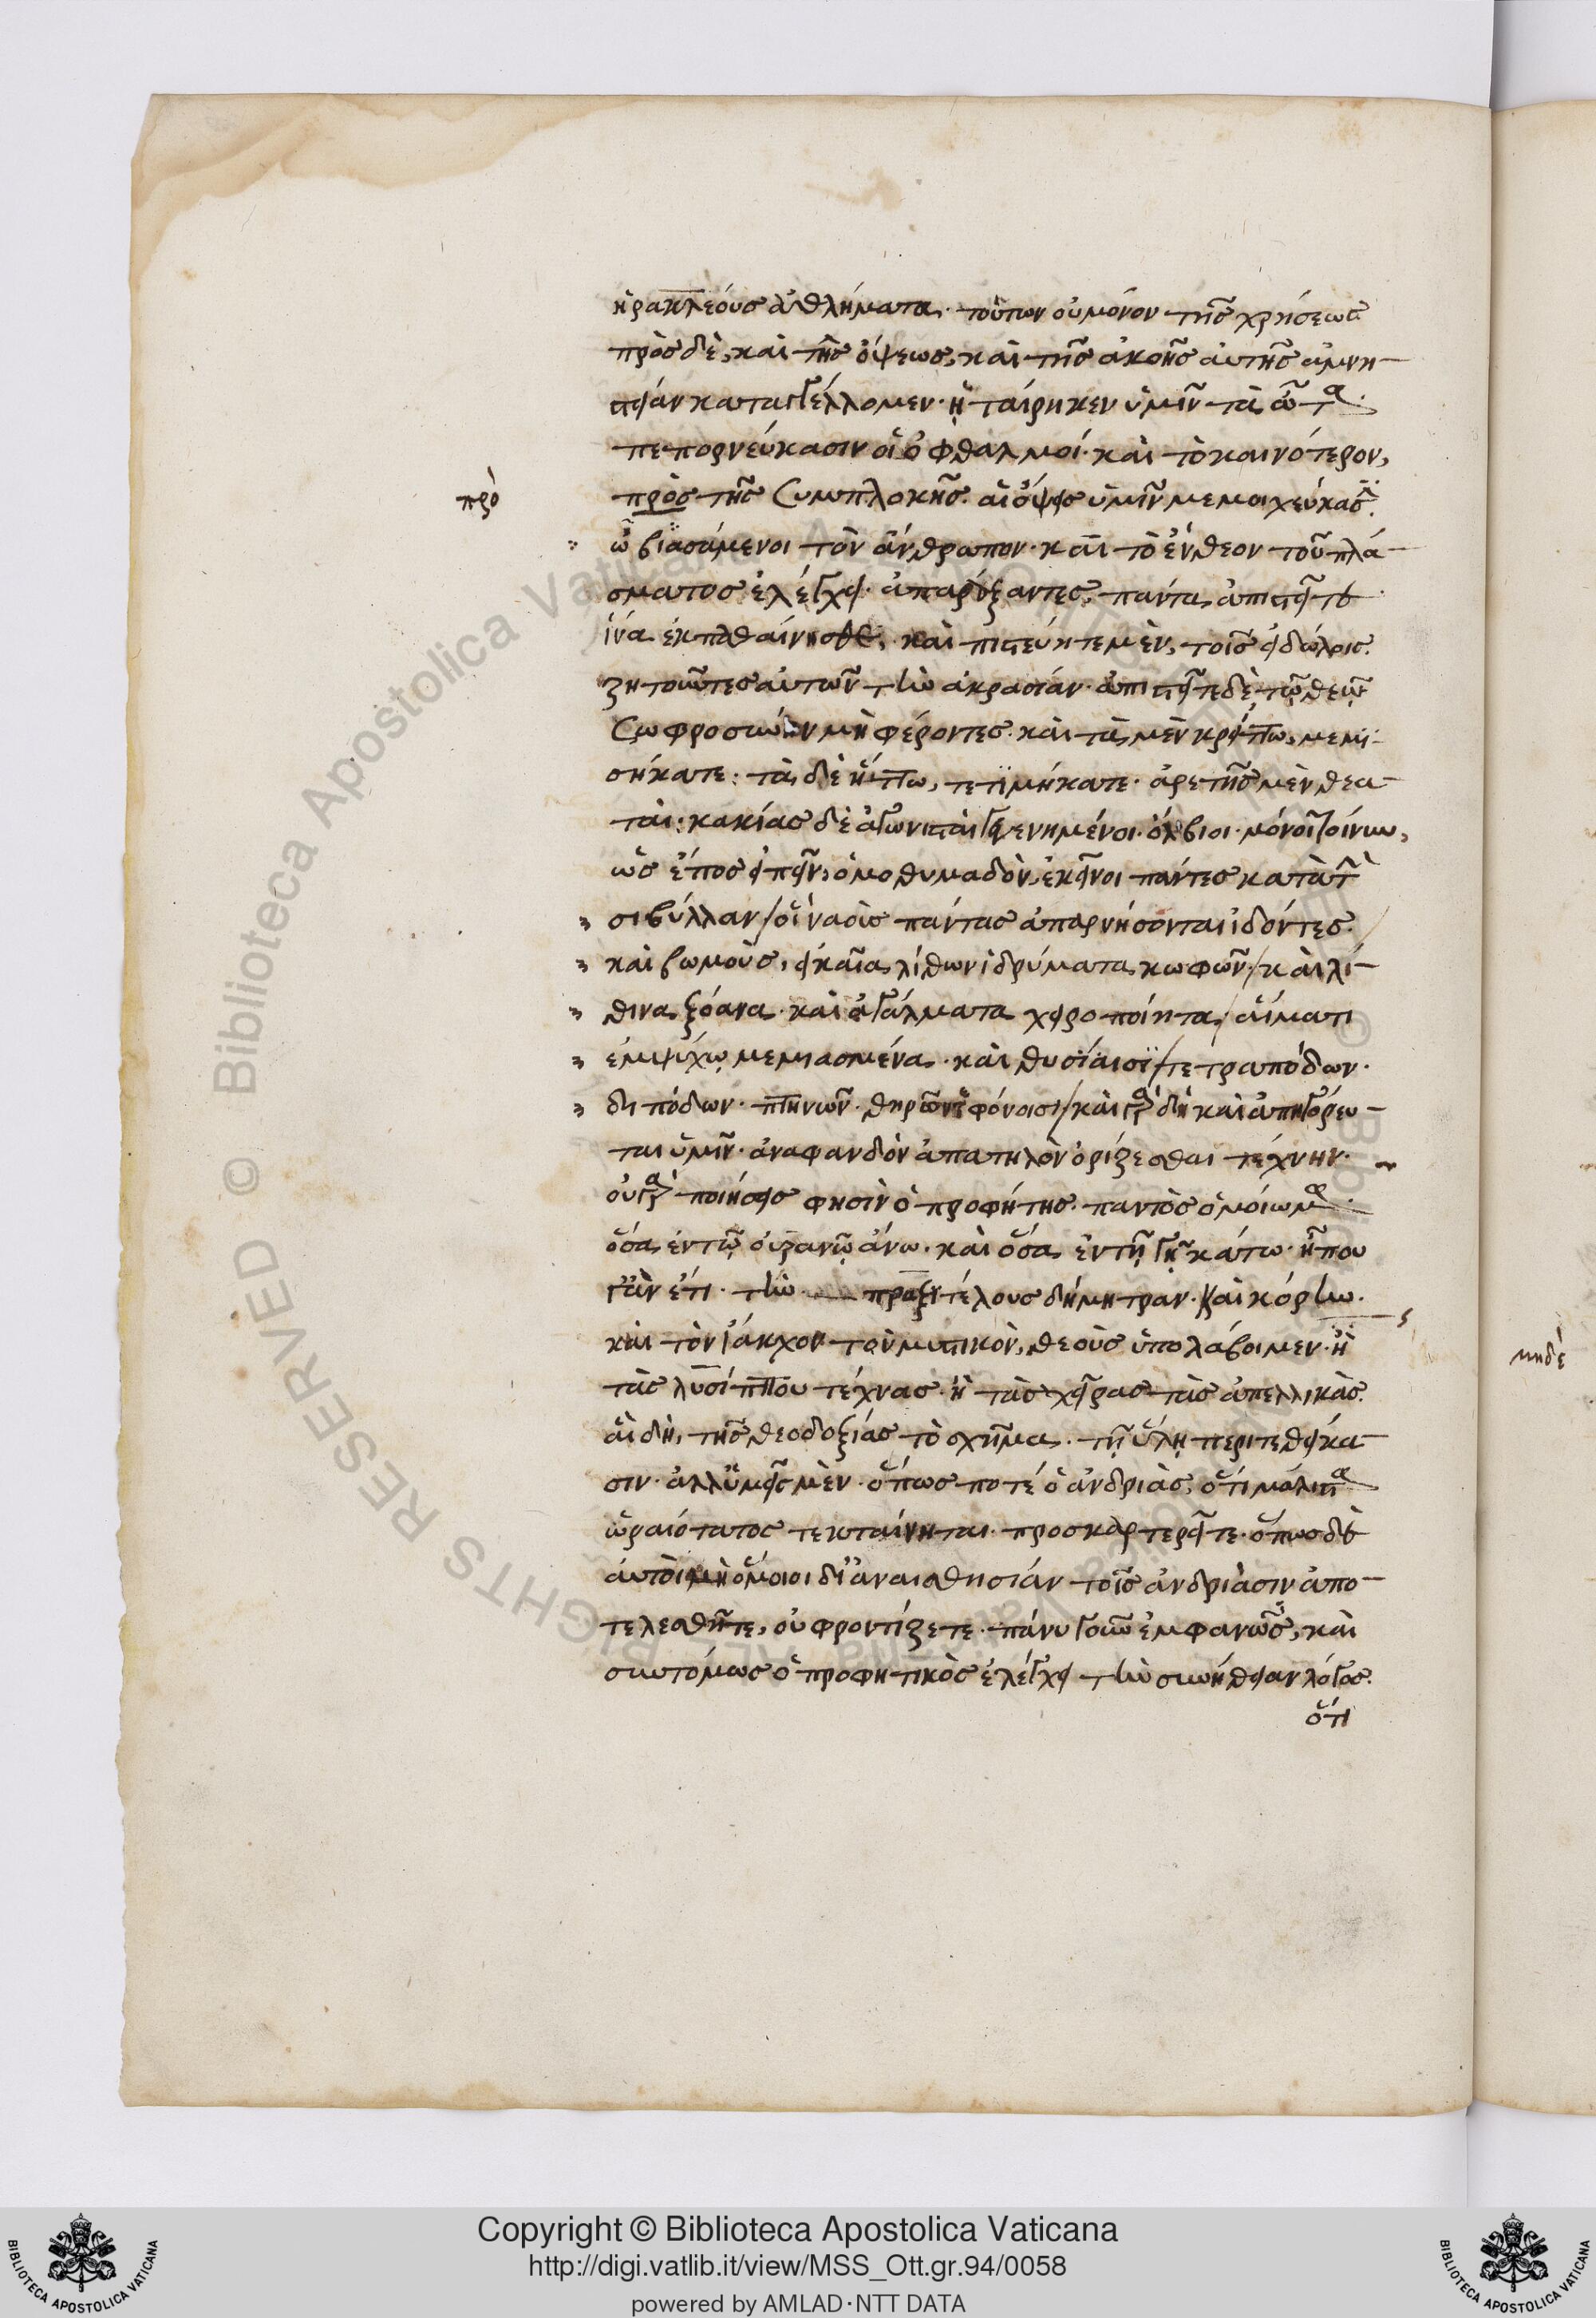 ἡρακλέους ἀθλήματα. τούτων οὐ μόνον τῆς χρήσεως
πρὸς δὲ, καὶ τῆς ὄψεως, καὶ τῆς ἀκοῆς αὐτῆς ἀμνη-
στείαν καταγγέλλομεν. ἡταίρηκεν ὑμῖν τὰ ὦτα.
πεπορνεύκασιν οἱ ὀφθαλμοί. καὶ τὸ καινότερον,
πρὸ
πρὸς τῆς συμπλοκῆς. αἱ ὄψεις ὑμῖν μεμοιχεύκασι.
ὦ βιασάμενοι τὸν ἄνθρωπον. καὶ τὸ ἔνθεον τοῦ πλά-
σματος ἐλέγχει ἀπαρύξαντες, πάντα ἀπιστεῖτε
ἵνα ἐκπαθαίνησθε, καὶ πιστεύητε μὲν, τοῖς εἰδώλοις.
ζητοῦντες αὐτῶν τὴν ἀκρασίαν. ἀπιστεῖτε δὲ τῷ θεῷ
σωφροσύνην μὴ φέροντες. καὶ τὰ μὲν κρείττω, μεμι-
σήκατε: τὰ δὲ ἥττω, τετιμήκατε. ἀρετῆς μὲν θεα-
ταὶ: κακίας δὲ ἀγωνισταὶ γεγενημένοι. ὄλβιοι μόνοι τοίνυν,
ὡς ἔπος εἰπεῖν, ὁμοθυμαδὸν, ἐκεῖνοι πάντες κατὰ τὴν
σιβύλλαν / οἳ ναοὺς πάντας ἀπαρνήσονται ἰδόντες.
καὶ βωμοὺς, εἰκαῖα λίθων ἱδρύματα κωφῶν. / καὶ λί-
θινα ξόανα. καὶ ἀγάλματα χειροποίητα, / αἵματι
ἐμψύχῳ μεμιασμένα. καὶ θυσίαισι / τετραπόδων.
διπόδων. πτηνῶν. θηρῶν τε φόνοισι / καὶ γὰρ δὴ καὶ ἀπηγόρευ-
ται ὑμῖν. ἀναφανδὸν ἀπατηλὸν ὁρίζεσθαι τέχνην.
οὐ γὰρ ποιήσεις φησὶν ὁ προφήτης. παντὸς ὁμοίωμα.
ὅσα ἐν τῷ οὐρανῷ ἄνω. καὶ ὅσα ἐν τῇ γῇ κάτω. ἦπου
γἂν ἔτι. τὴν πραξιτέλους δήμητραν. καὶ κόρην.
καὶ τὸν ἴακχον τὸν μυστικὸν, θεοὺς ὑπολάβοιμεν. ἢ
τὰς λυσίππου τέχνας. ἢ τὰς χεῖρας τὰς ἀπελλικὰς.
αἳ δὴ, τῆς θεοδοξίας τὸ σχῆμα. τῇ ὕλῃ περιτεθείκα-
σιν. ἀλλ' ὑμεῖς μὲν. ὅπως ποτέ ὁ ἀνδριὰς, ὅτι μάλιστα
ὡραιότατος τεκταίνηται. προσκαρτερεῖτε. ὅπως δὲ
αὐτοὶ μὴ ὅμοιοι δι' ἀναισθησίαν τοῖς ἀνδριᾶσιν ἀπο-
τελεσθῆτε, οὐ φροντίζετε. πάνυ γοῦν ἐμφανῶς, καὶ
συντόμως ὁ προφητικὸς ἐλέγχει τὴν συνήθειαν λόγος.
ὅτι
μηδὲ
BIBLIOTECA APOSTOLICA VATICANA
Copyright © Biblioteca Apostolica Vaticana
http://digi.vatlib.it/view/MSS_Ott.gr.94/0058
powered by AMLAD·NTT DATA
BIBLIOTECA APOSTOLICA VATICANA